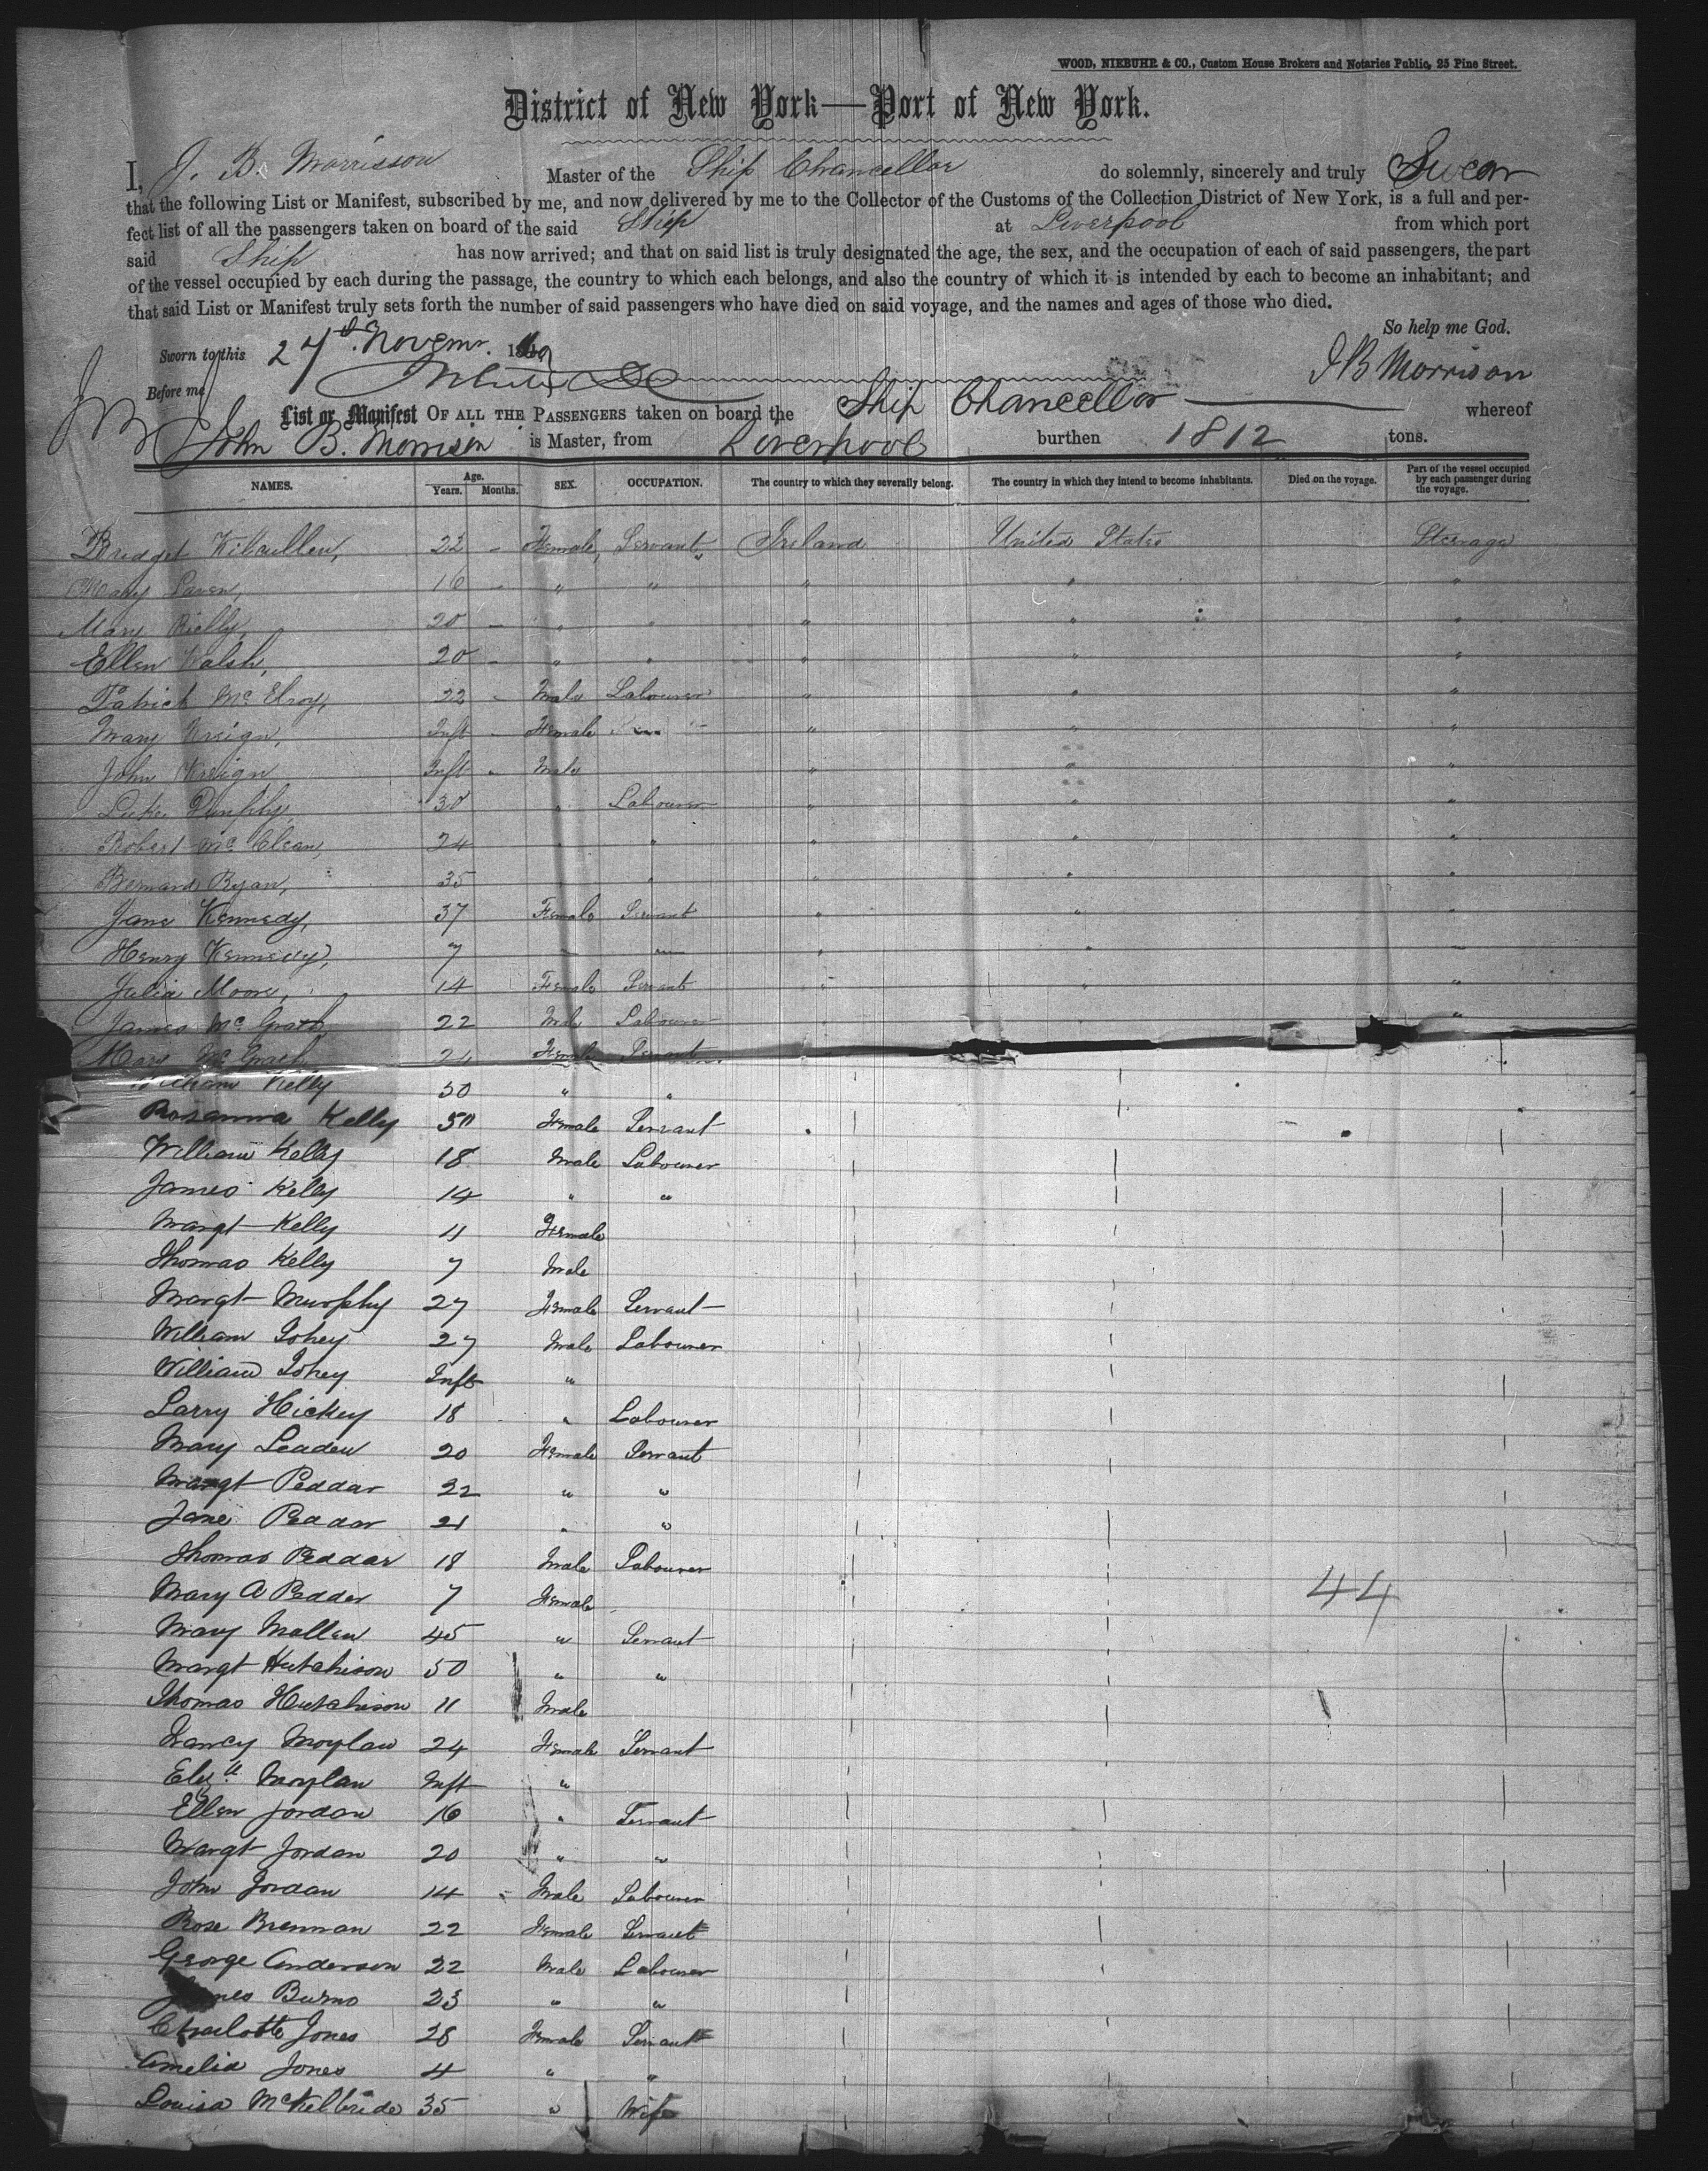 WOOD, NIEBUHR & CO., Custom House Brokers and Notaries Public, 25 Pine Street.
District of New York—Port of New York.
I, J. B. Morrisson Master of the Ship Chancellor do solemnly, sincerely and truly Swear
that the following List or Manifest, subscribed by me, and now delivered by me to the Collector of the Customs of the Collection District of New York, is a full and per-
fect list of all the passengers taken on board of the said Ship at Liverpool from which port
said Ship has now arrived; and that on said list is truly designated the age, the sex, and the occupation of each of said passengers, the part
of the vessel occupied by each during the passage, the country to which each belongs, and also the country of which it is intended by each to become an inhabitant; and
that said List or Manifest truly sets forth the number of said passengers who have died on said voyage, and the names and ages of those who died.
So help me God.
Sworn to this 27th Novemr. 1869
J B Morrison
Before me
List or Manifest OF ALL THE PASSENGERS taken on board the Ship Chancellor whereof
John B. Morrison is Master, from Liverpool burthen 1812 tons.
NAMES. Age. Years. Months. SEX. OCCUPATION. The country to which they severally belong. The country in which they intend to become inhabitants. Died on the voyage. Part of the vessel occupied by each passenger during the voyage.
Bridget Kilcullen, 22 - Female, Servant, Ireland United States Steerage
Mary Laven, 16 - " " " " "
Mary Rielly, 20 - " " " " "
Ellen Walsh, 20 - " " " " "
Patrick McElroy, 22 - Male Labourer " " "
Mary Inft - Female " " "
John Inft - Male " " "
Luke Dunphy, 30 " Labourer " " "
Robert McClean, 24 " " " " "
Bernard Ryan, 35 " " " "
Jane Kennedy, 37 Female Servant " " "
Henry Kennedy, 7 — — " " "
Julia Moore, 14 Female Servant " " "
James McGrath, 22 Male Labourer "
Mary McGrath 24 Female Servant
William Kelly 50 " "
Rosanna Kelly 50 Female Servant
William Kelly 18 Male Labourer
James Kelly 14 " "
Margt Kelly 11 Female
Thomas Kelly 7 Male
Margt Murphy 27 Female Servant
William Tohey 27 Male Labourer
William Tohey Inft "
Larry Hickey 18 " Labourer
Mary Leaden 20 Female Servant
Margt Peddar 22 " "
Jane Peddar 21 " "
Thomas Peddar 18 Male Labourer
Mary A Peddar 7 Female
44
Mary Mallen 45 " Servant
Margt Hutchison 50 " "
Thomas Hutchison 11 Male
Nancy Moylan 24 Female Servant
Elizth Moylan Inft "
Ellen Jordan 16 " Servant
Margt Jordan 20 " "
John Jordan 14 Male Labourer
Rose Brennan 22 Female Servant
George Anderson 22 Male Labourer
James Burns 23 " "
Charlotte Jones 28 Female Servant
Amelia Jones 4 " "
Louisa McKelbride 35 " Wife